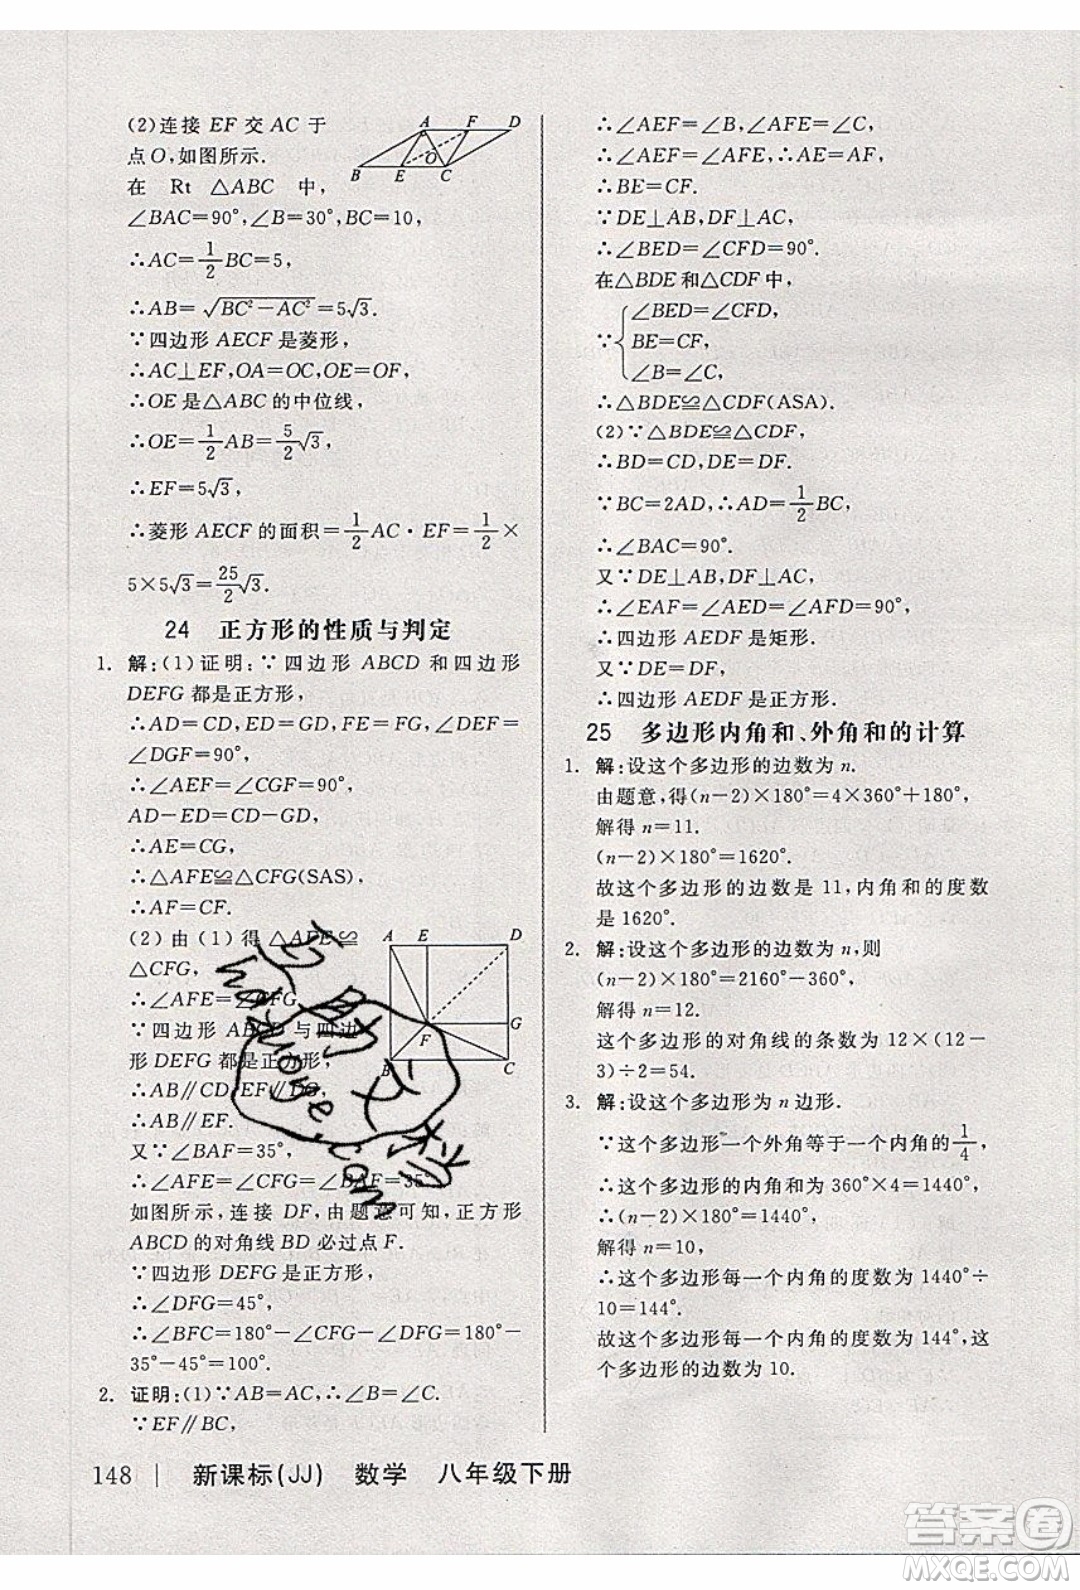 (2)连接 EF 交 AC 于
点O,如图所示.
在 Rt △ABC 中,
∠BAC=90°,∠B=30°,BC=10,
∴AC=1/2BC=5,
∴AB=√(BC²-AC²)=5√3.
∵四边形 AECF 是菱形,
∴AC⊥EF,OA=OC,OE=OF,
∴OE 是△ABC 的中位线,
∴OE=1/2AB=5/2√3,
∴EF=5√3,
∴菱形 AECF 的面积=1/2AC·EF=1/2×
5×5√3=25/2√3.
A F D
O
B E C
24 正方形的性质与判定
1. 解:(1)证明:∵四边形 ABCD 和四边形
DEFG 都是正方形,
∴AD=CD,ED=GD,FE=FG,∠DEF
=∠DGF=90°,
∴∠AEF=∠CGF=90°,
AD-ED=CD-GD,
∴AE=CG,
∴△AFE≌△CFG(SAS),
∴AF=CF.
(2)由(1)得△AFE≌
△CFG,
∴∠AFE=∠CFG.
∵四边形 ABCD 与四边
形 DEFG 都是正方形,
∴AB∥CD,EF∥DG,
∴AB∥EF.
又∵∠BAF=35°,
∴∠AFE=∠CFG=∠BAF=35°.
如图所示,连接 DF,由题意可知,正方形
ABCD 的对角线 BD 必过点 F.
∵四边形 DEFG 是正方形,
∴∠DFG=45°,
∴∠BFC=180°-∠CFG-∠DFG=180°-
35°-45°=100°.
A E D
G
F
B C
2. 证明:(1)∵AB=AC,∴∠B=∠C.
∵EF∥BC,
∴∠AEF=∠B,∠AFE=∠C,
∴∠AEF=∠AFE,∴AE=AF,
∴BE=CF.
∵DE⊥AB,DF⊥AC,
∴∠BED=∠CFD=90°.
在△BDE 和△CDF 中,
∠BED=∠CFD,
∵ BE=CF,
∠B=∠C,
∴△BDE≌△CDF(ASA).
(2)∵△BDE≌△CDF,
∴BD=CD,DE=DF.
∵BC=2AD,∴AD=1/2BC,
∴∠BAC=90°.
又∵DE⊥AB,DF⊥AC,
∴∠EAF=∠AED=∠AFD=90°,
∴四边形 AEDF 是矩形.
又∵DE=DF,
∴四边形 AEDF 是正方形.
25 多边形内角和、外角和的计算
1. 解:设这个多边形的边数为 n.
由题意,得(n-2)×180°=4×360°+180°,
解得 n=11.
(n-2)×180°=1620°.
故这个多边形的边数是 11,内角和的度数
是 1620°.
2. 解:设这个多边形的边数为 n,则
(n-2)×180°=2160°-360°,
解得 n=12.
这个多边形的对角线的条数为 12×(12-
3)÷2=54.
3. 解:设这个多边形为 n 边形.
∵这个多边形一个外角等于一个内角的1/4,
∴这个多边形的内角和为 360°×4=1440°,
∴(n-2)×180°=1440°,
解得 n=10,
∴这个多边形每一个内角的度数为 1440°÷
10=144°.
故这个多边形每一个内角的度数为 144°,这
个多边形的边数为 10.
148 | 新课标(JJ) 数学 八年级下册
答案圈
MXQE.COM